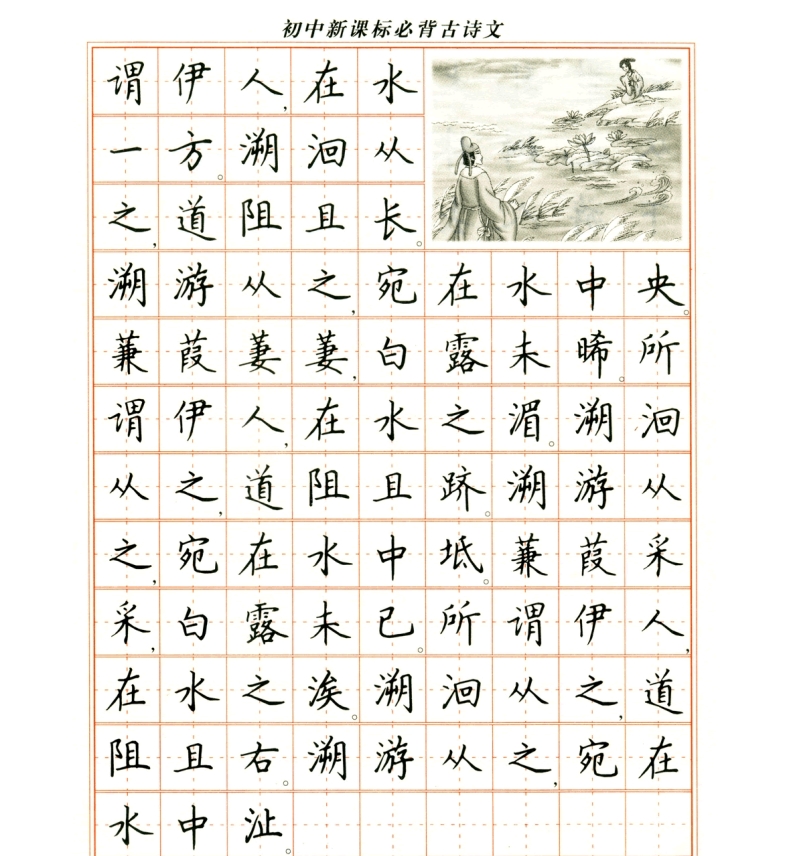 初中新课标必背古诗文
谓伊人,在水
一方。溯洄从
之,道阻且长。
溯游从之,宛在水中央。
蒹葭萋萋,白露未晞。所
谓伊人,在水之湄。溯洄
从之,道阻且跻。溯游从
之,宛在水中坻。蒹葭采
采,白露未已。所谓伊人,
在水之涘。溯洄从之,道
阻且右。溯游从之,宛在
水中沚。